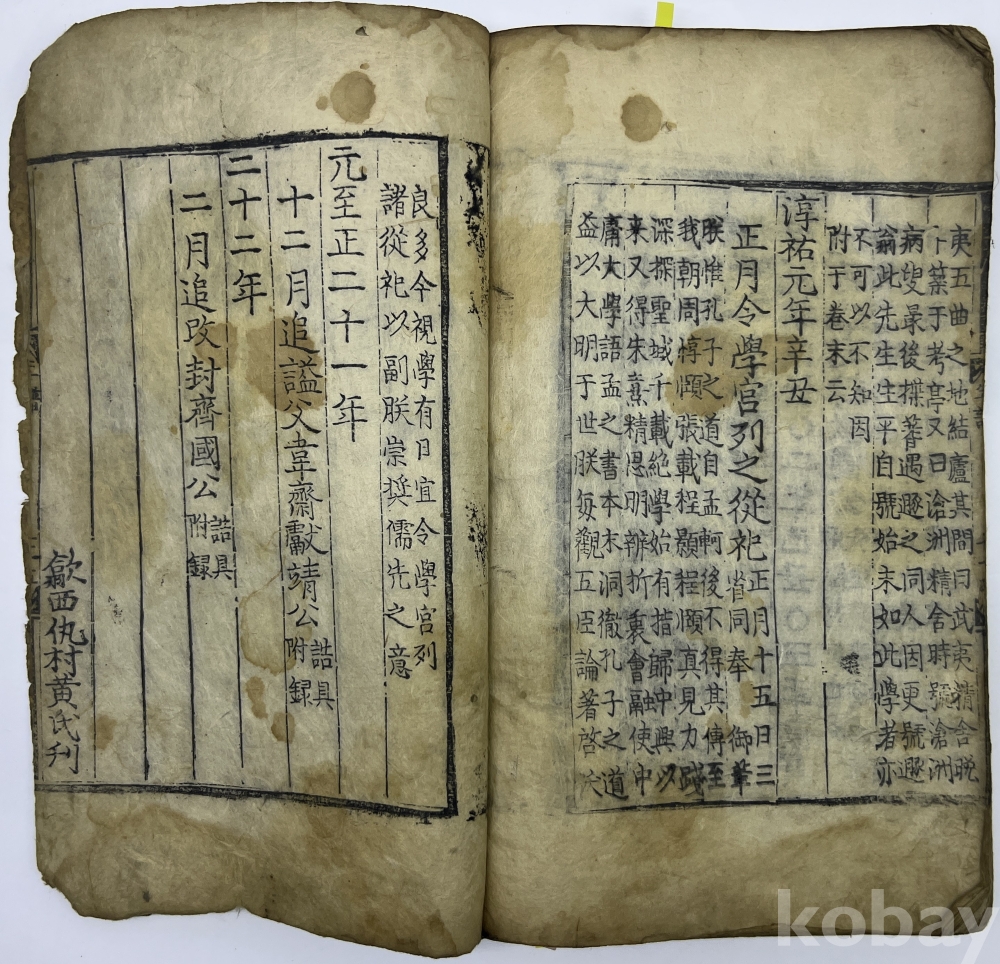 夷五曲之地結廬其間曰武夷精舍晚
卜築于考亭又曰滄洲精舍時號滄洲
病叟最後揲蓍遇遯之同人因更號遯
翁此先生生平自號始末如此學者亦
不可以不知因
附于卷末云
淳祐元年辛丑
正月令學官列之從祀
正月十五日三
省同奉 御筆
朕惟孔子之道自孟軻後不得其傳至
我朝周惇頤張載程顥程頤真見力踐
深探聖域千載絕學始有指歸中興以
來又得朱熹精思明辨折衷會融使中
庸大學語孟之書本末洞徹孔子之道
益以大明于世朕每觀五臣論著啓沃
良多今視學有日宜令學官列
諸從祀以副朕崇奬儒先之意
元至正二十一年
十二月追謚父韋齋獻靖公
誥具
附録
二十二年
二月追改封齊國公
誥具
附録
歙西仇村黃氏刋
kobay